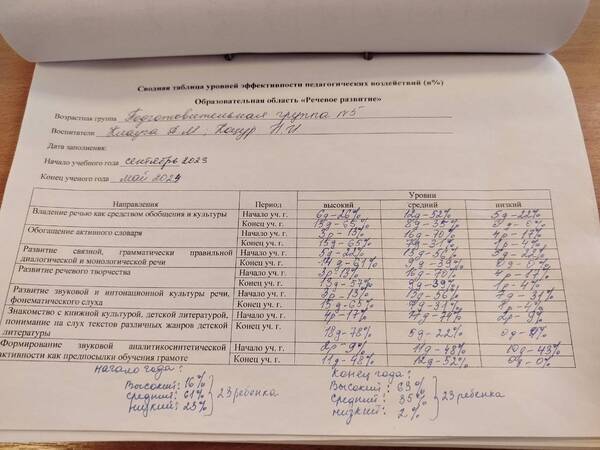 Сводная таблица уровней эффективности педагогических воздействий (в%)
Образовательная область «Речевое развитие»
Возрастная группа Подготовительная группа №5
Воспитатели
Дата заполнения:
Начало учебного года сентябрь 2023
Конец ученого года май 2024
Направления Период Уровни
высокий средний низкий
Владение речью как средством обобщения и культуры Начало уч. г. 6д-26% 12д-52% 5д-22%
Конец уч. г. 15д-65% 8д-35% 0%
Обогащение активного словаря Начало уч. г. 3р-13% 16д-70% 4р-17%
Конец уч. г. 15д-65% 7д-31% 1р-4%
Развитие связной, грамматически правильной Начало уч. г. 5д-22% 13д-56% 5д-22%
диалогической и монологической речи Конец уч. г. 14д-61% 9д-39%
Развитие речевого творчества Начало уч. г. 3р-13% 16д-70% 4р-17%
Конец уч. г. 13д-57% 9д-39% 1р-4%
Развитие звуковой и интонационной культуры речи, Начало уч. г. 3р-13% 13д-56% 7д-31%
фонематического слуха Конец уч. г. 15д-65% 7д-31% 1р-4%
Знакомство с книжной культурой, детской литературой, Начало уч. г. 4р-17% 17д-74% 2р-9%
понимание на слух текстов различных жанров детской Конец уч. г.
литературы 18д-78% 5д-22%
Формирование звуковой аналитикосинтетической Начало уч. г. 2р-9% 11д-48% 10д-43%
активности как предпосылки обучения грамоте Конец уч. г. 11д-48% 12д-52% 0д-0%
Начало года:
Высокий: 16%
Средний: 61% 23 ребенка
Низкий: 23%
Конец года:
Высокий: 63%
Средний: 35% 23 ребенка
Низкий: 2%